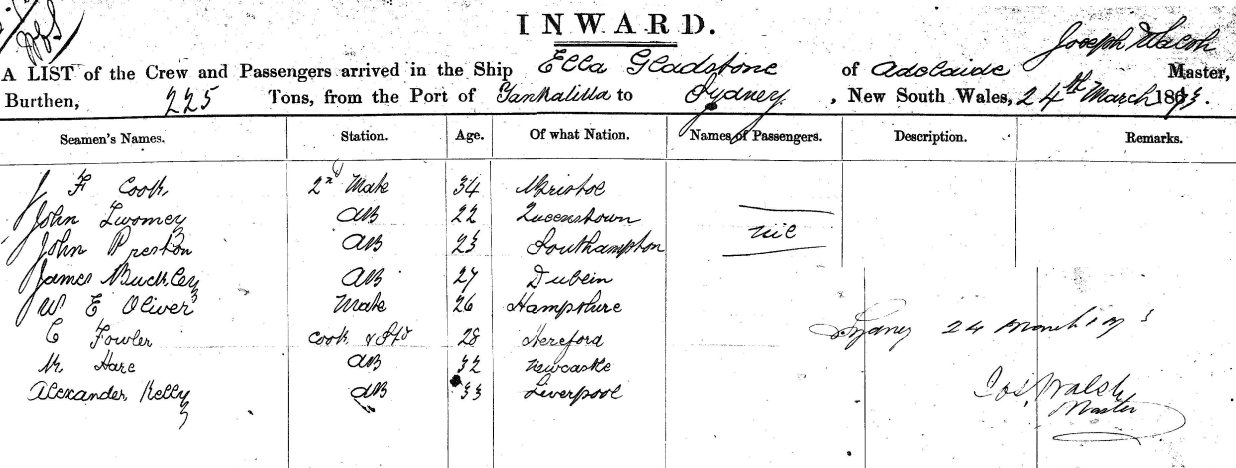 INWARD.
Joseph Walsh
A LIST of the Crew and Passengers arrived in the Ship Ella Gladstone of Adelaide Master,
Burthen, 225 Tons, from the Port of Yankalilla to Sydney, New South Wales, 24th March 1873.
Seamen's Names. Station. Age. Of what Nation. Names of Passengers. Description. Remarks.
J F Cook 2nd Mate 34 Bristol
John Twomey AB 22 Queenstown
John Preston AB 23 Southampton nil
James Buckley AB 27 Dublin
W E Oliver Mate 26 Hampshire
C Fowler Cook & Std 28 Hereford
Sydney 24 March 187
Hare AB 32 Newcastle
Alexander Kelly AB 33 Liverpool
Jos. Walsh
Master